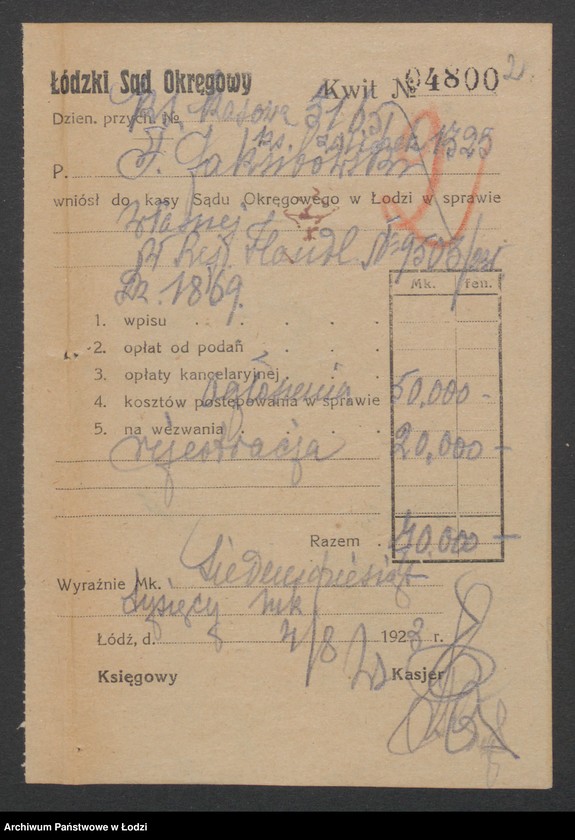 2
Łódzki Sąd Okręgowy Kwit № 04800
Dzien. przych. №
ks. 1325
P. F. Jakubowski
wniósł do kasy Sądu Okręgowego w Łodzi w sprawie
własnej
Rej. Handl. № 9503
Dz. 1869.
Mk. fen.
1. wpisu
2. opłat od podań
3. opłaty kancelaryjnej
ogłoszenia 50,000 -
4. kosztów postępowania w sprawie
5. na wezwania
rejestracja 20,000 -
Razem 70.000 -
Wyraźnie Mk. Siedemdziesiąt
tysięcy mk
Łódź, d. 4/8 1923 r.
Księgowy Kasjer
Archiwum Państwowe w Łodzi